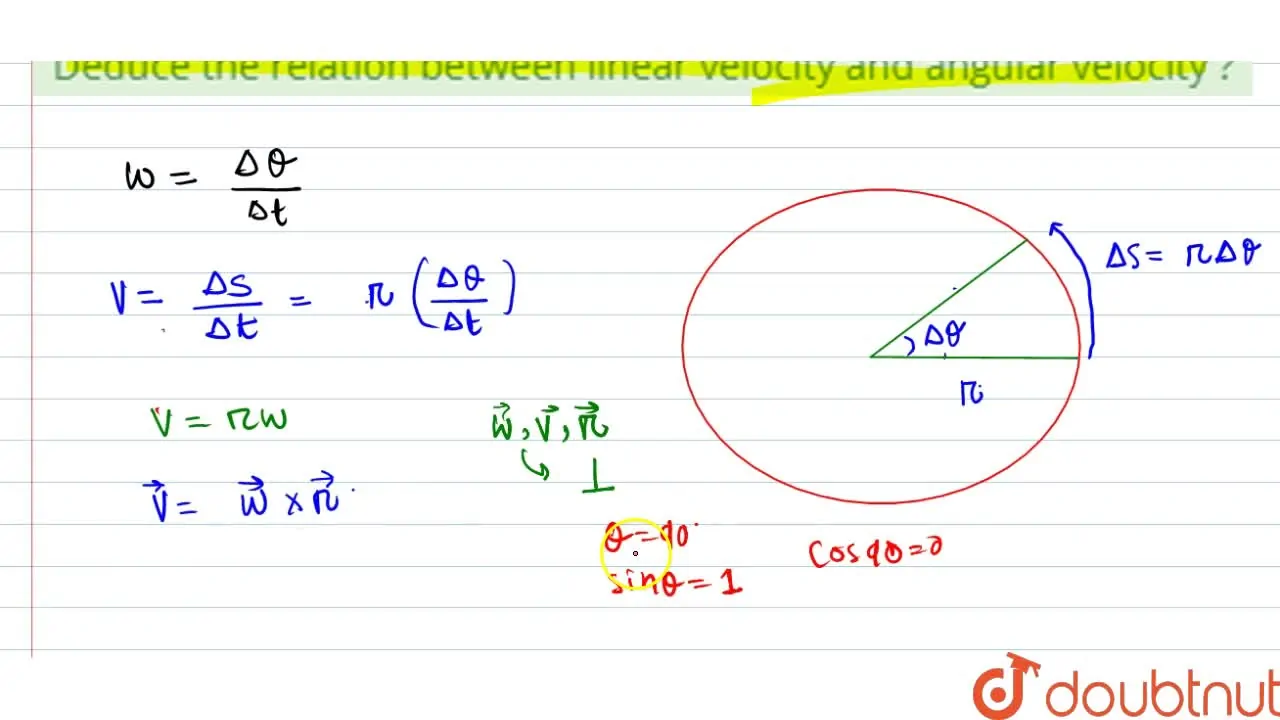 Deduce the relation between linear velocity and angular velocity ?
ω = Δθ/Δt
V = Δs/Δt = r (Δθ/Δt)
Δs = rΔθ
Δθ
r
V = rω
ω⃗, v⃗, r⃗
⊥
V⃗ = ω⃗ × r⃗
θ = 90°
sinθ = 1
Cos90 = 0
doubtnut